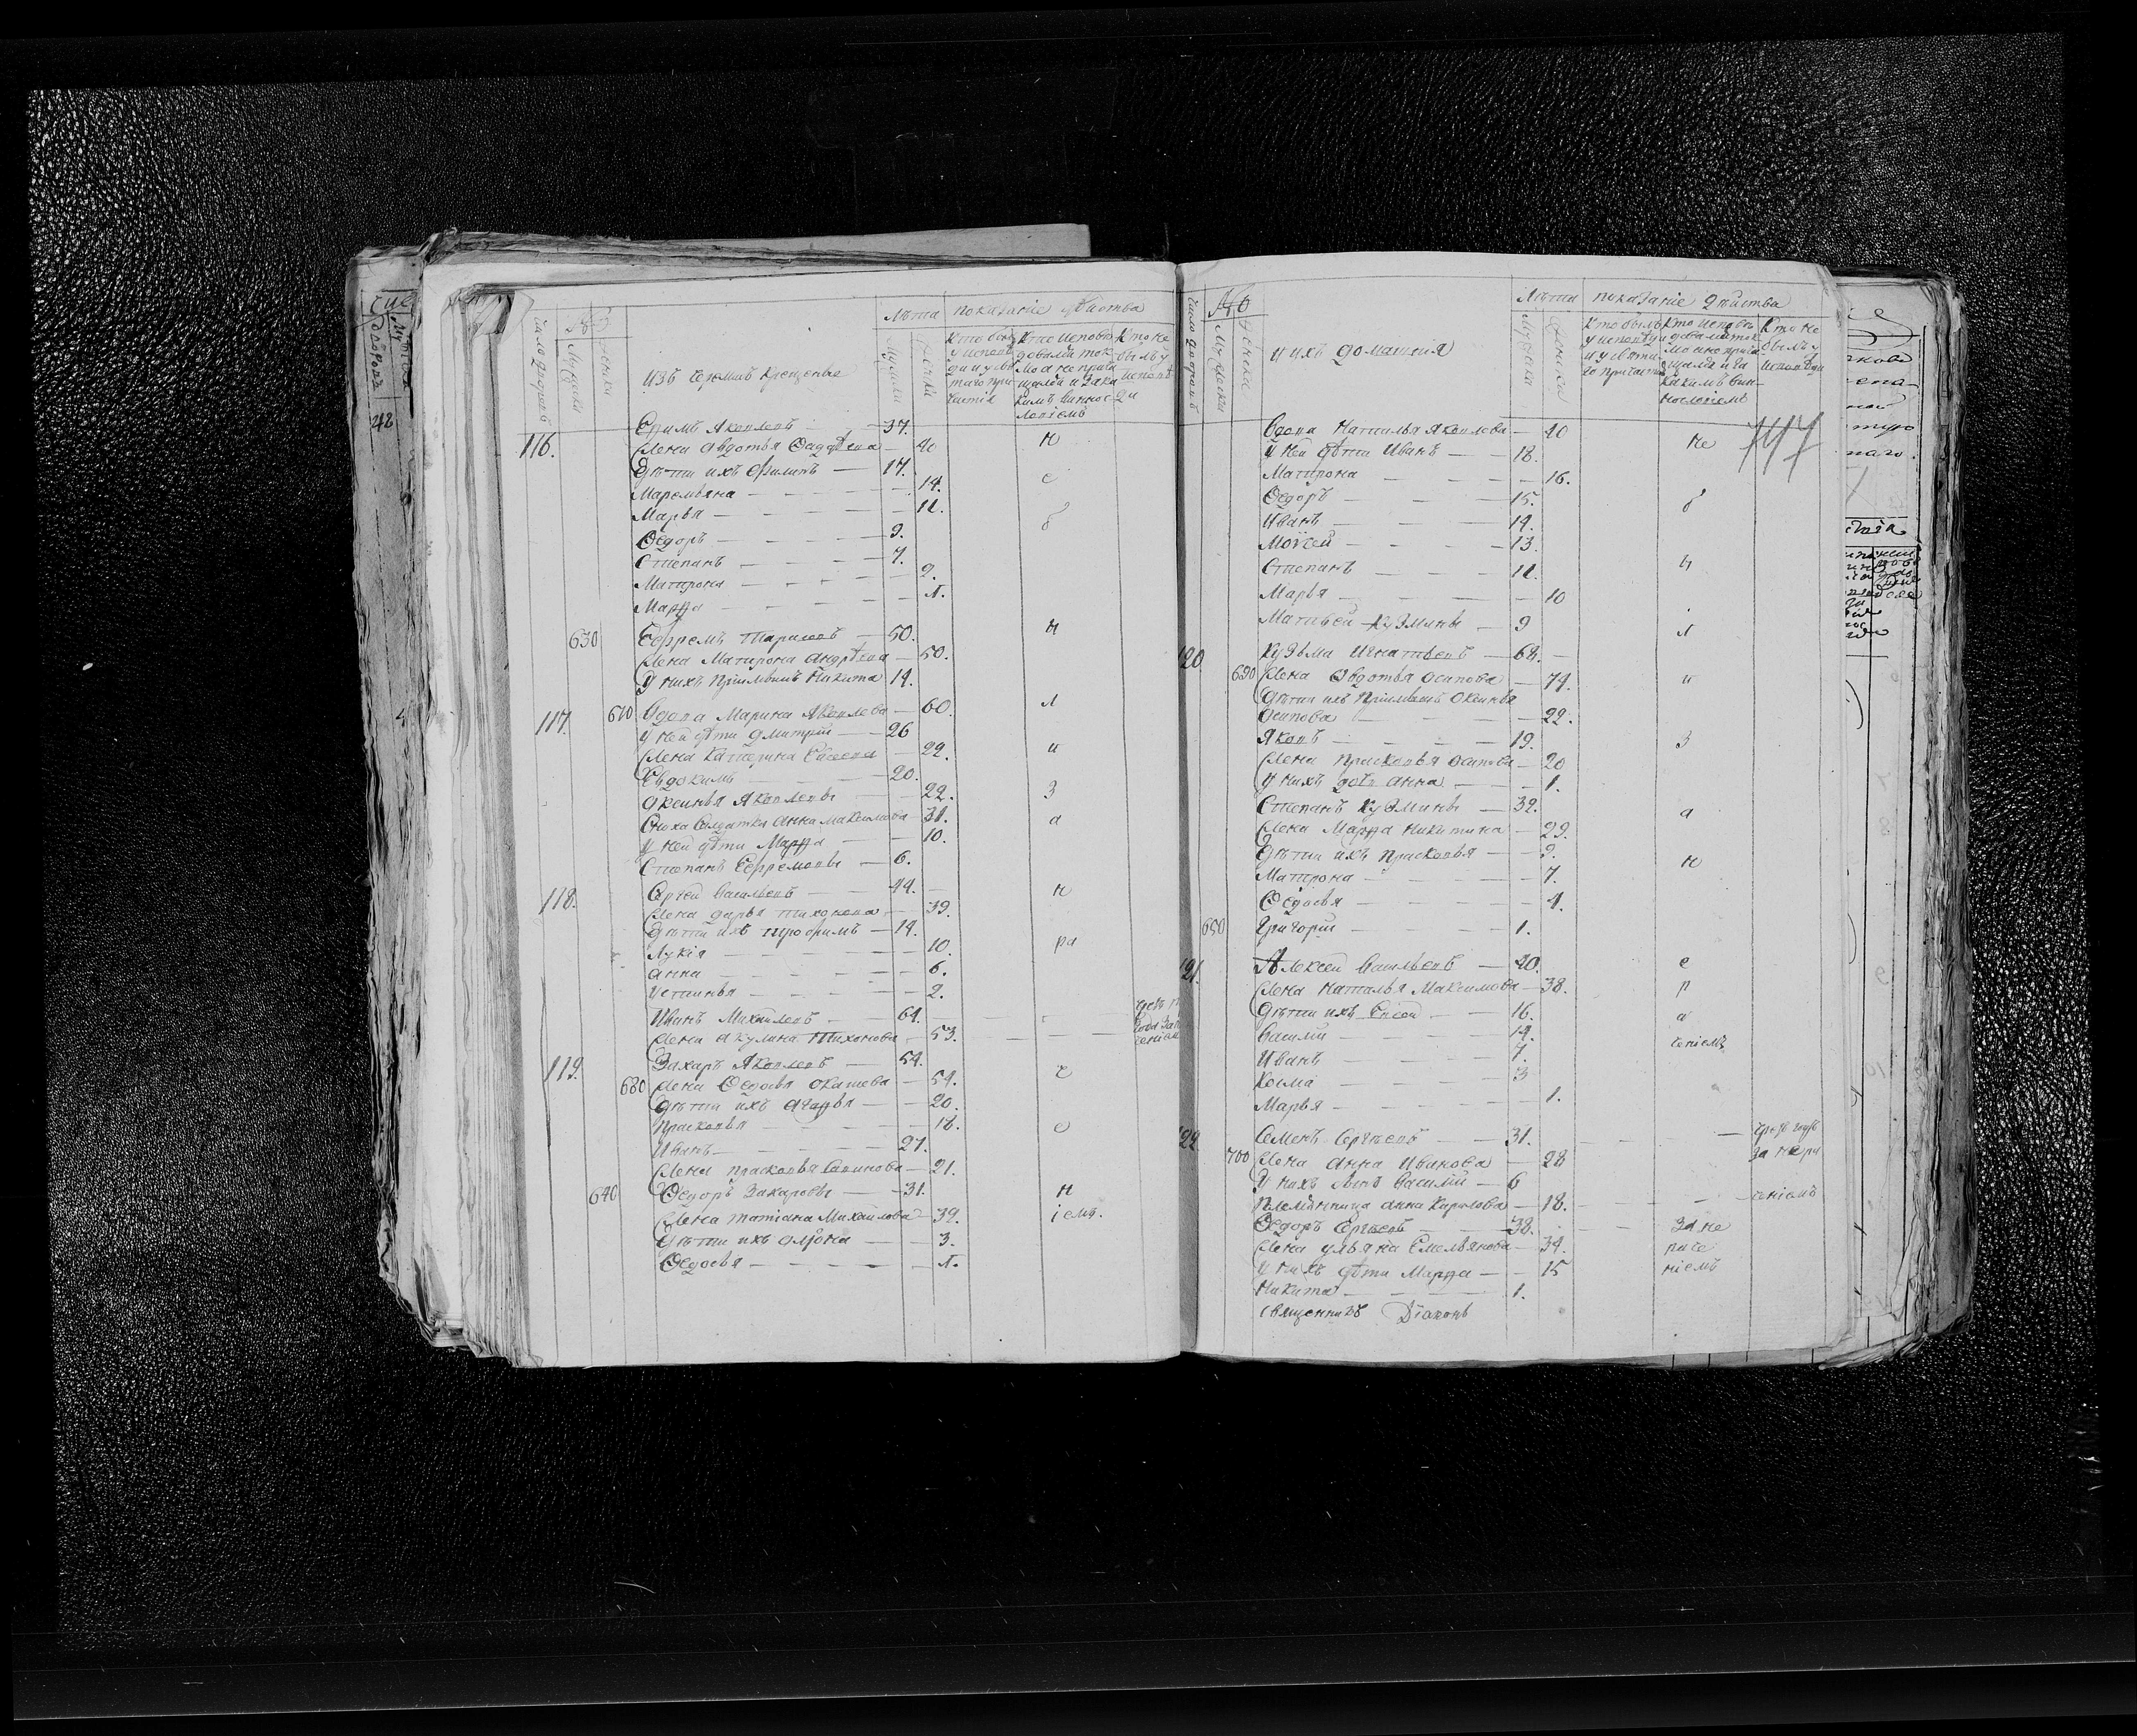 Лѣта показаніе действа
число дворовъ
Мужески
Женски
изъ черемисъ крещеные
Мужски
Женски
Кто былъ у исповѣди и у святаго причастія
Кто исповѣдовался токмо а не причащался и за какимъ виннословіемъ
Кто не былъ у исповѣди
Ефимъ Яковлевъ — 37.
116. Жена Авдотья Фаддѣева — 40 н
Дѣти ихъ Филипъ — 17.
Маремьяна — 14. е
Марья — 11.
Ѳедоръ — 9. б
Степанъ — 7.
Матрона — 2.
Марфа — 1.
630 Ефремъ — 50. н
Жена Матрона Андрѣева — 50.
У нихъ приимышъ Никита 14.
117. 670 Вдова Марина Яковлева — 60. л
у ней дѣти Дмитрий — 26
Жена Катерина — 22. и
Евдокимъ — 20.
Аксинья Яковлевы — 22. З
Сноха Солдатка Анна Максимова — 31. а
у ней дѣти Марфа — 10.
Степанъ Ефремовы — 6.
118. Сергѣй Васильевъ — 44. н
Жена Дарья Тихонова — 39.
Дѣти ихъ Трофимъ — 14.
Лукія — 10. ра
Анна — 6.
Устинья — 2.
Иванъ Михайловъ — 64.
Жена Акулина Тихонова — 53.
119. Захаръ Яковлевъ — 54.
680 Жена Ѳедосья — 54. ч
Дѣти ихъ Агафья — 20.
Прасковья — 18. е
Иванъ — 27.
Жена Прасковья — 21.
640 Ѳедоръ Захаровы — 31. н
Жена Татіана Михайлова — 39. іемъ.
Дѣти ихъ Алёна — 3.
Ѳедосья — 1.
число дворовъ
Мужески
Женски
и ихъ домашния
Лѣта показаніе Действа
Мужски
Женски
Кто былъ у исповѣди и у святаго причастия
Кто исповѣдовался токмо а не причащался и за какимъ виннословіемъ
Кто не былъ у исповѣди
747
Вдова Наталья Яковлева — 40 не
у ней дѣти Иванъ — 18.
Матрона — 16.
Ѳедоръ — 15. б
Иванъ — 14.
Моисей — 13.
Степанъ — 11.
Марья — 10
Матвѣй Кузмины — 9 л
120 Кузьма Игнатьевъ — 68.
690 Жена Авдотья Осипова — 74. и
Дѣти ихъ приимышъ Аксинья
Осипова — 22.
Яковъ — 19. З
Жена Прасковья Осипова — 20
У нихъ дочь Анна — 1.
Степанъ Кузмины — 32. а
Жена Марфа Никитина — 29.
Дѣти ихъ Прасковья — 9.
Матрона — 7. н
Ѳедосья — 4.
650 Григорій — 1.
121. Алексей Васильевъ — 40. е
Жена Наталья Максимова — 38. р
Дѣти ихъ Евсей — 16. а
Василій — 14. ченіемъ
Иванъ — 7.
Косма — 3
Марья — 1.
122 Семенъ Сергѣевъ — 31.
700 Жена Анна Иванова — 28 за нера
У нихъ сынъ Василій — 6 ченіемъ
Племянница Анна Кирилова — 18.
Ѳедоръ Сергѣевъ — 38. За не
Жена Ульяна Емельянова — 34. раче
У нихъ дѣти Марфа — 15 ніемъ
Никита — 1.
священникъ Діаконъ